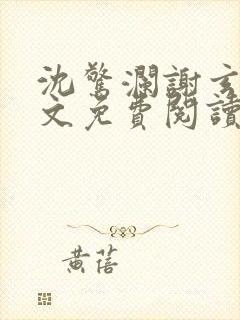 沈驚瀾謝玄
文免費閱讀
黃蓓